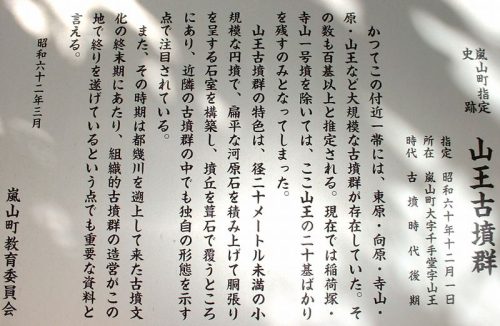 嵐山町指定
史跡
山王古墳群
指定 昭和六十年十二月一日
所在 嵐山町大字千手堂字山王
時代 古墳時代後期
かつてこの付近一帯には、東原・向原・寺山・
原・山王など大規模な古墳群が存在していた。そ
の数も百基以上と推定される。現在では稲荷塚・
寺山一号墳を除いては、ここ山王の二十基ばかり
を残すのみとなってしまった。
山王古墳群の特色は、径二十メートル未満の小
規模な円墳で、扁平な河原石を積み上げて胴張り
を呈する石室を構築し、墳丘を葺石で覆うところ
にあり、近隣の古墳群の中でも独自の形態を示す
点で注目されている。
また、その時期は都幾川を遡上して来た古墳文
化の終末期にあたり、組織的古墳群の造営がこの
地で終りを遂げているという点でも重要な資料と
言える。
昭和六十二年三月
嵐山町教育委員会